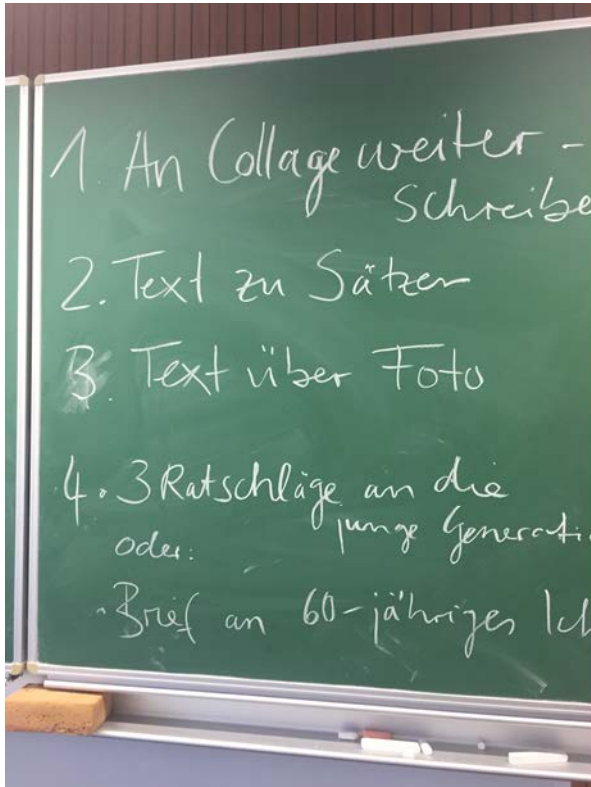 1. An Collage weiter-
schreibe
2. Text zu Sätzen
3. Text über Foto
4. 3 Ratschläge an die
junge Generati
oder:
- Brief an 60-jähriges Ich